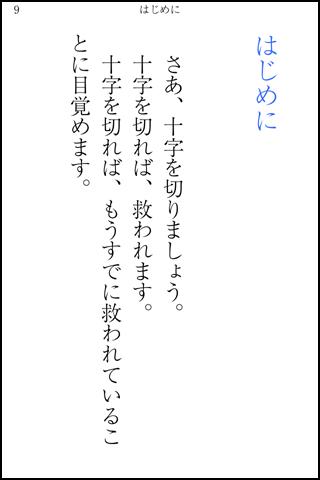 9
はじめに
はじめに
さあ、十字を切りましょう。
十字を切れば、救われます。
十字を切れば、もうすでに救われているこ
とに目覚めます。